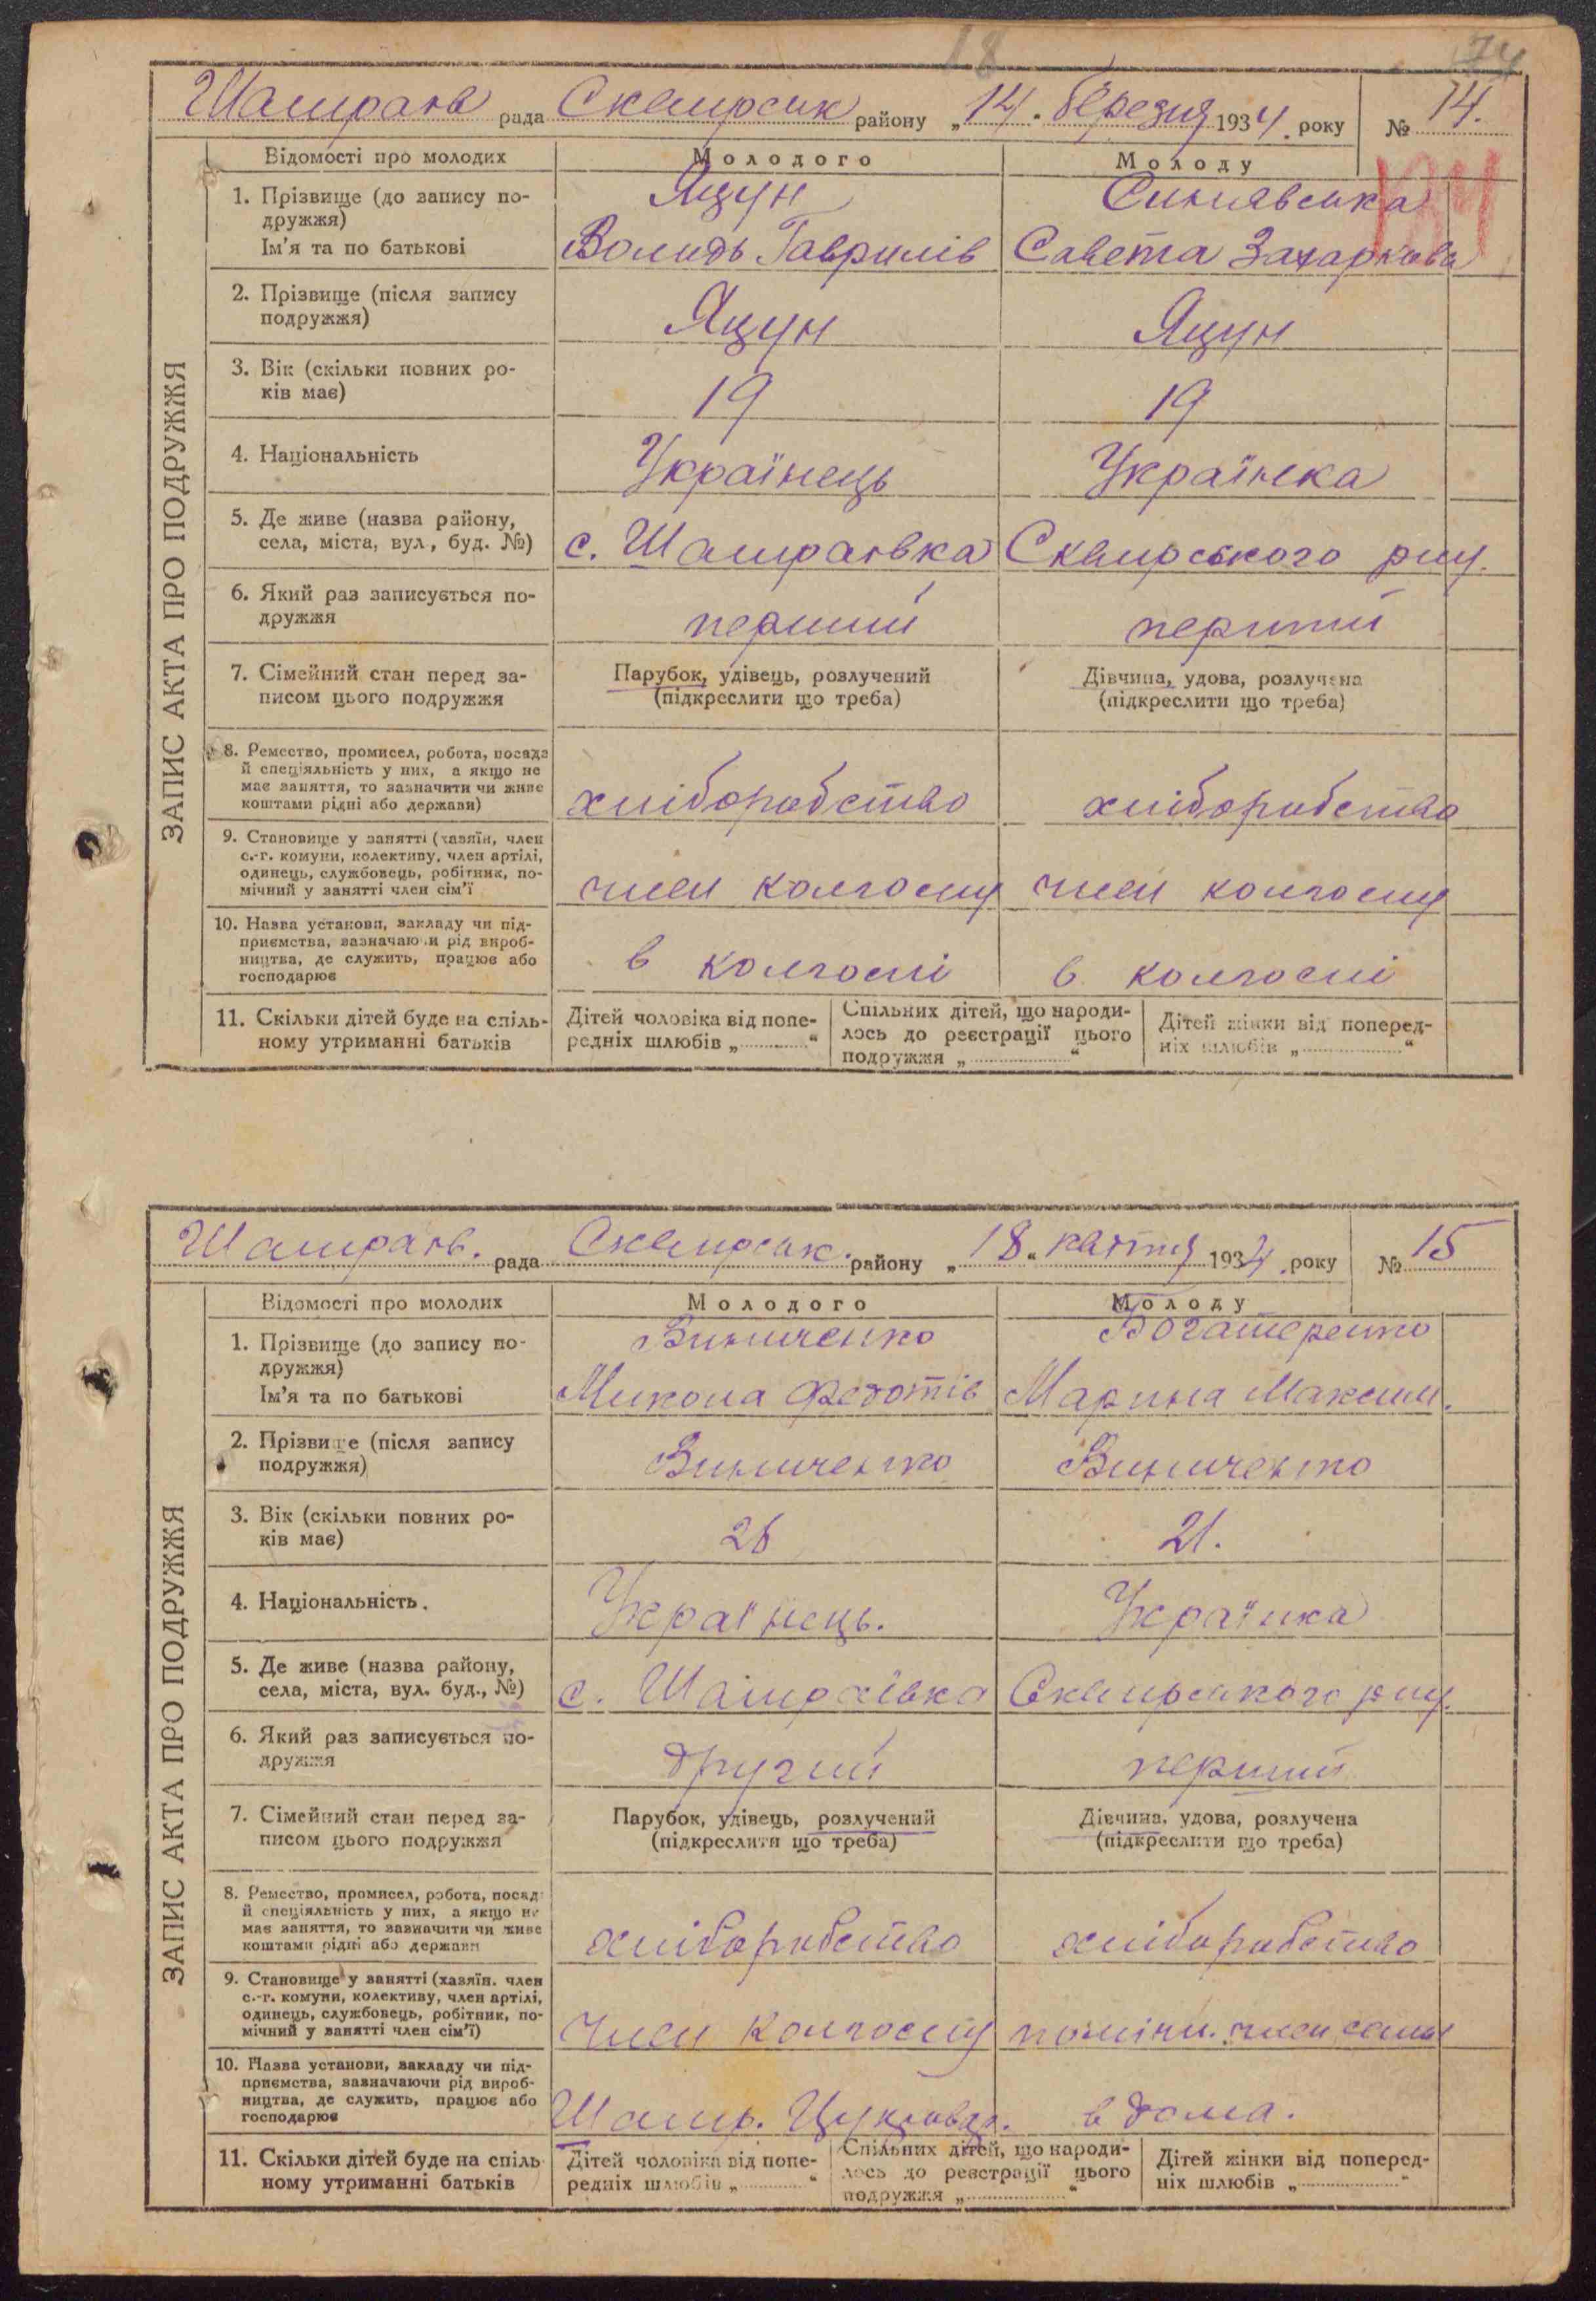 18 74
Шамраїв рада Сквирськ району „14“ березня 1934 року № 14.
184
ЗАПИС АКТА ПРО ПОДРУЖЖЯ
Відомості про молодих Молодого Молоду
1. Прізвище (до запису по- Яцун Синявська
дружжя)
Ім'я та по батькові Волидь Гаврилів Савета Захаркова
2. Прізвище (після запису
подружжя) Яцун Яцун
3. Вік (скільки повних ро-
ків має) 19 19
4. Національність Українець Українка
5. Де живе (назва району,
села, міста, вул., буд. №) с. Шамраївка Сквирського р-ну.
6. Який раз записується по-
дружжя перший перший
7. Сімейний стан перед за- Парубок, удівець, розлучений Дівчина, удова, розлучена
писом цього подружжя (підкреслити що треба) (підкреслити що треба)
8. Ремество, промисел, робота, посада
й спеціяльність у них, а якщо не
має заняття, то зазначити чи живе
коштами рідні або держави) хліборобство хліборобство
9. Становище у занятті (хазяїн, член
с.-г. комуни, колективу, член артілі,
одинець, службовець, робітник, по-
мічний у занятті член сім'ї член колгоспу член колгоспу
10. Назва установи, закладу чи під-
приємства, зазначаючи рід вироб-
ництва, де служить, працює або
господарює в колгоспі в колгоспі
11. Скільки дітей буде на спіль-
ному утриманні батьків
Дітей чоловіка від попе-
редніх шлюбів „ “
Спільних дітей, що народи-
лось до реєстрації цього
подружжя „ “
Дітей жінки від поперед-
ніх шлюбів „ “
Шамраїв. рада Сквирськ. району „18“ квітня 1934 року № 15
ЗАПИС АКТА ПРО ПОДРУЖЖЯ
Відомості про молодих Молодого Молоду
1. Прізвище (до запису по- Виниченко Богатеренко
дружжя)
Ім'я та по батькові Микола Федотів Марина Максим.
2. Прізвище (після запису
подружжя) Виниченко Виниченко
3. Вік (скільки повних ро-
ків має) 26 21.
4. Національність. Українець. Українка
5. Де живе (назва району,
села, міста, вул. буд., №) с. Шамраївка Сквирського р-ну.
6. Який раз записується по-
дружжя другий перший
7. Сімейний стан перед за- Парубок, удівець, розлучений Дівчина, удова, розлучена
писом цього подружжя (підкреслити що треба) (підкреслити що треба)
8. Ремество, промисел, робота, посад
й спеціяльність у них, а якщо не
має заняття, то зазначити чи живе
коштами рідні або держави хліборобство хліборобство
9. Становище у занятті (хазяїн. член
с.-г. комуни, колективу, член артілі,
одинець, службовець, робітник, по-
мічний у занятті член сім'ї) член колгоспу помічн. член семьи
10. Назва установи, закладу чи під-
приємства, зазначаючи рід вироб-
ництва, де служить, працює або
господарює Шамр. в дома.
11. Скільки дітей буде на спіль-
ному утриманні батьків
Дітей чоловіка від попе-
редніх шлюбів „ “
Спільних дітей, що народи-
лось до реєстрації цього
подружжя „ “
Дітей жінки від поперед-
ніх шлюбів „ “